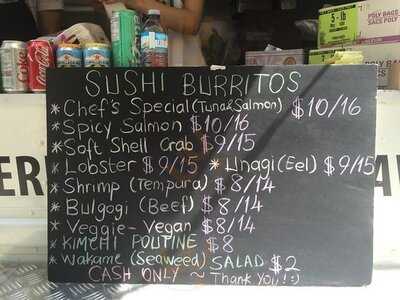 Coca-Cola
5 - lb
POLY BAGS
SACS POLY
SUSHI BURRITOS
* Chef's Special (Tuna & Salmon) $10/16
* Spicy Salmon $10/16
* Soft Shell Crab $9/15
* Lobster $9/15 * Unagi (Eel) $9/15
* Shrimp (Tempura) $8/14
* Bulgogi (Beef) $8/14
* Veggie - Vegan $8/14
* KIMCHI POUTINE $8
* Wakame (Seaweed) SALAD $2
CASH ONLY ~ Thank You! :)